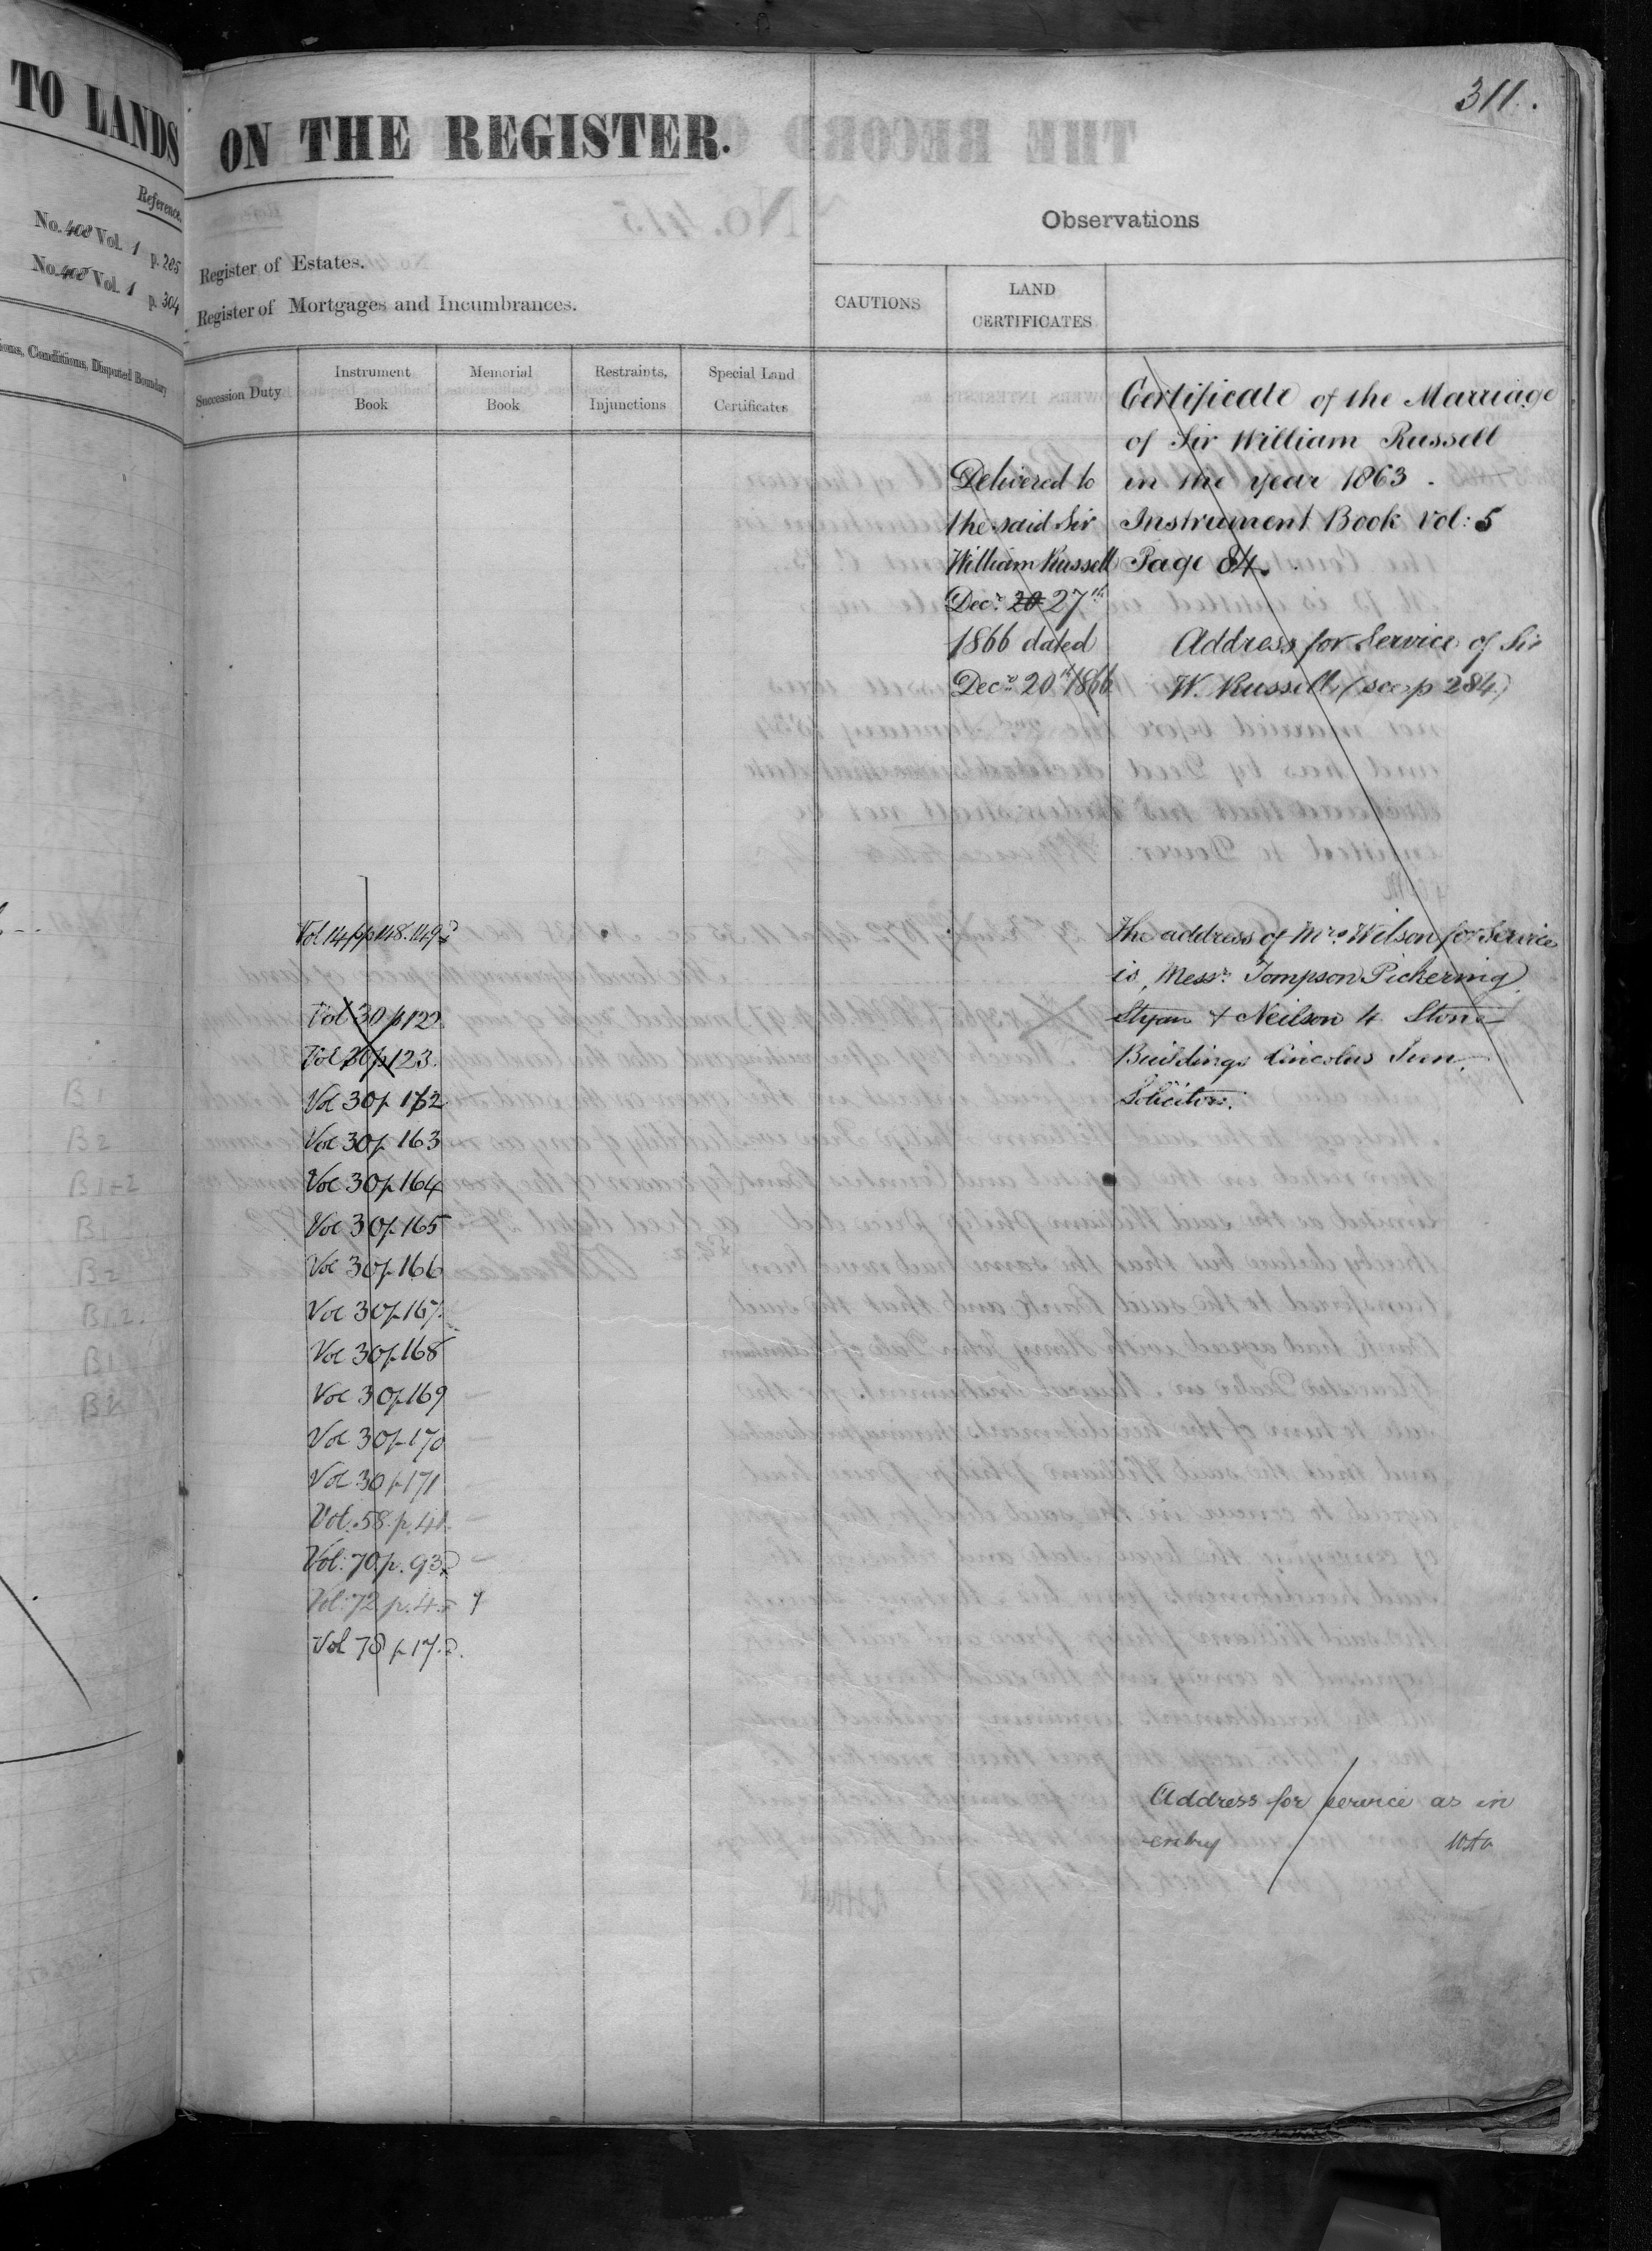 311.
TO LANDS
ON THE REGISTER.
Reference.
No. 408 Vol. 1 p. 285
No. 408 Vol. 1 p. 304
Conditions, Disputed Boundary
Register of Estates.
Register of Mortgages and Incumbrances.
Observations
CAUTIONS
LAND
CERTIFICATES
Succession Duty
Instrument
Book
Memorial
Book
Restraints,
Injunctions
Special Land
Certificates
Delivered to
the said Sir
William Russell
Decr. 20 27th
1866 dated
Decr. 20th 1866
Certificate of the Marriage
of Sir William Russell
in the year 1863.
Instrument Book Vol: 5
Page 84.
Address for Service of Sir
W. Russell (see p 284)
Vol 14 pp 148. 149
Vol 30 p 122
Vol 30 p 123.
Vol 30 p 162
Vol 30 p 163
Vol 30 p 164
Vol 30 p 165
Vol 30 p 166
Vol 30 p 167.
Vol 30 p 168
Vol 30 p 169
Vol 30 p 170
Vol 30 p 171
Vol. 58. p. 41
Vol: 70 p. 93
Vol: 72 p. 45
Vol 78 p 17
The address of Mrs. Wilson for Service
is, Messrs. Tompson Pickering
Styan & Neilson 4 Stone
Buildings Lincolns Inn,
Solicitors.
Address for service as in
entry
B 1
B 2
B 1-2
B 1
B 2
B 1.2.
B 1
B 2